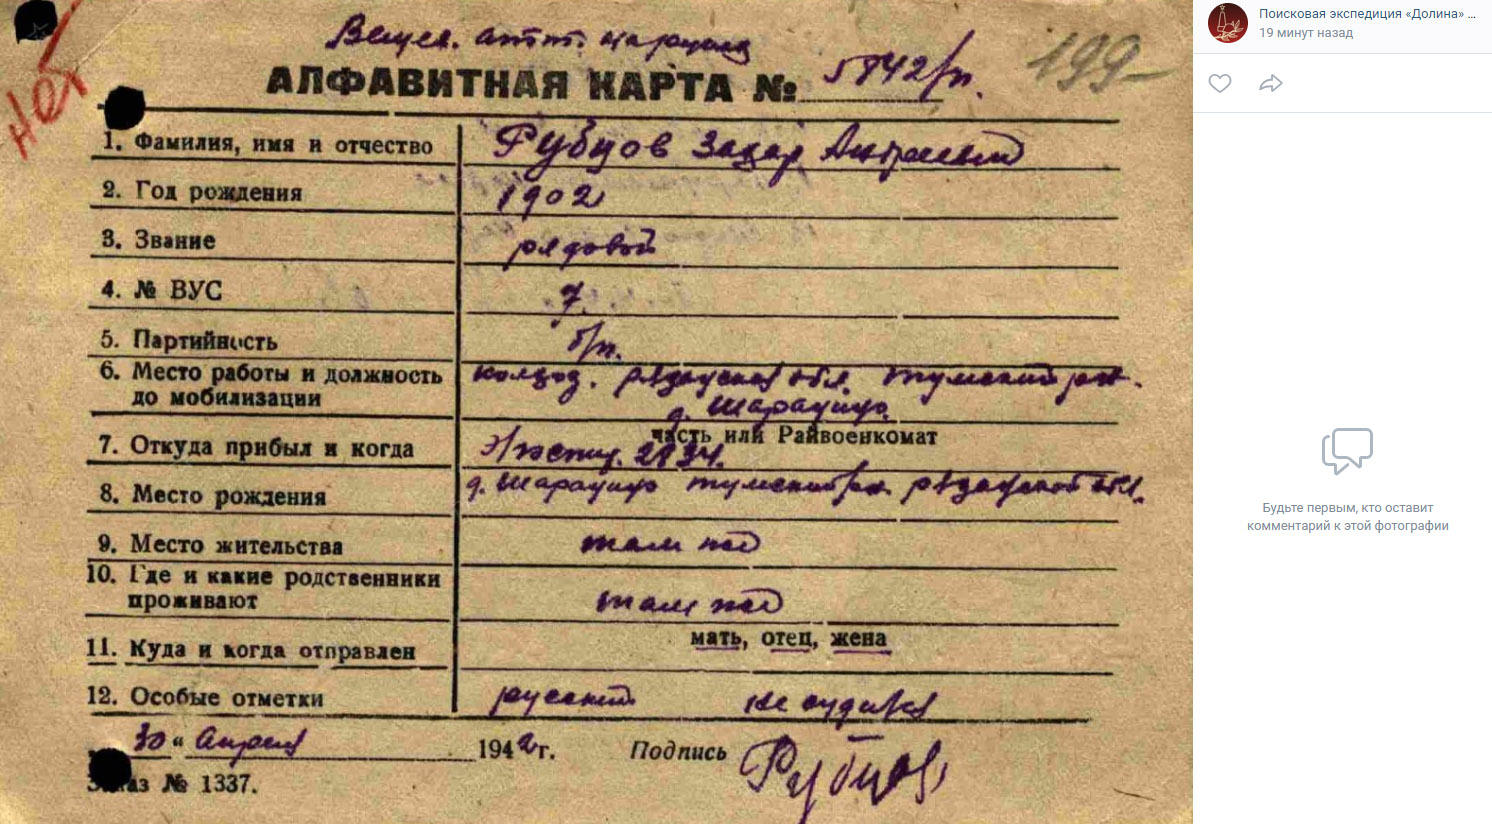 нет
АЛФАВИТНАЯ КАРТА № 5742/п.
199-
1. Фамилия, имя и отчество Рубцов Захар
2. Год рождения 1902
3. Звание рядовой
4. № ВУС 7.
5. Партийность б/п.
6. Место работы и должность колхоз. рязанская обл. тумский
до мобилизации д.
часть или Райвоенкомат
7. Откуда прибыл и когда 2834.
8. Место рождения д. тумский рязанской обл.
9. Место жительства там же
10. Где и какие родственники
проживают там же
мать, отец, жена
11. Куда и когда отправлен
12. Особые отметки русский не судился
30 " Апреля 1942 г. Подпись Рубцов
Заказ № 1337.
Поисковая экспедиция «Долина» ...
19 минут назад
Будьте первым, кто оставит
комментарий к этой фотографии